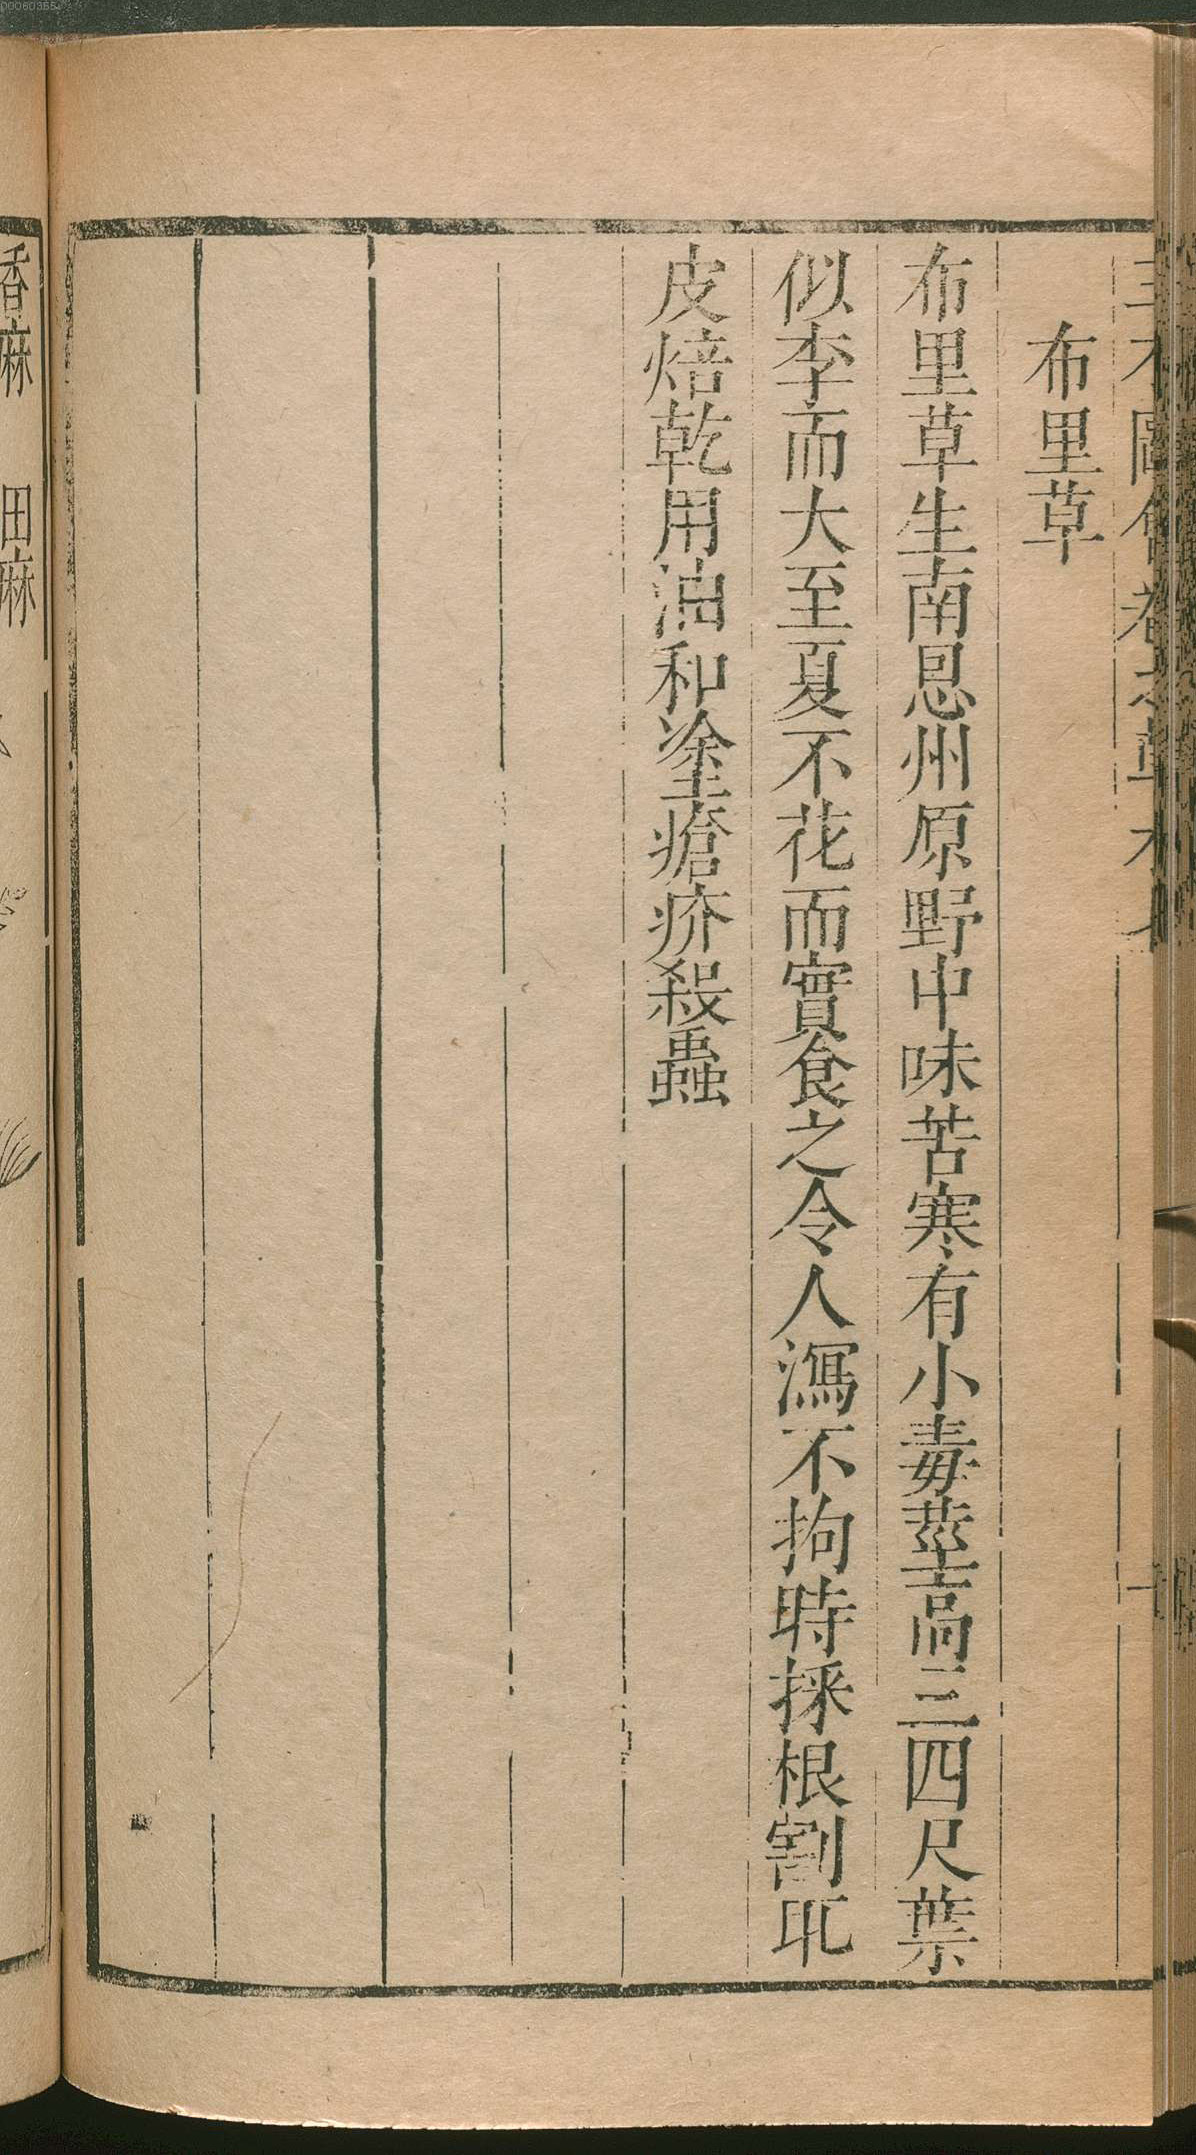 三才圖會卷之草木七
布里草
布里草生南恩州原野中味苦寒有小毒莖高三四尺葉
似李而大至夏不花而實食之令人瀉不拘時採根割取
皮焙乾用油和塗瘡疥殺蟲
香麻 田麻
00060355